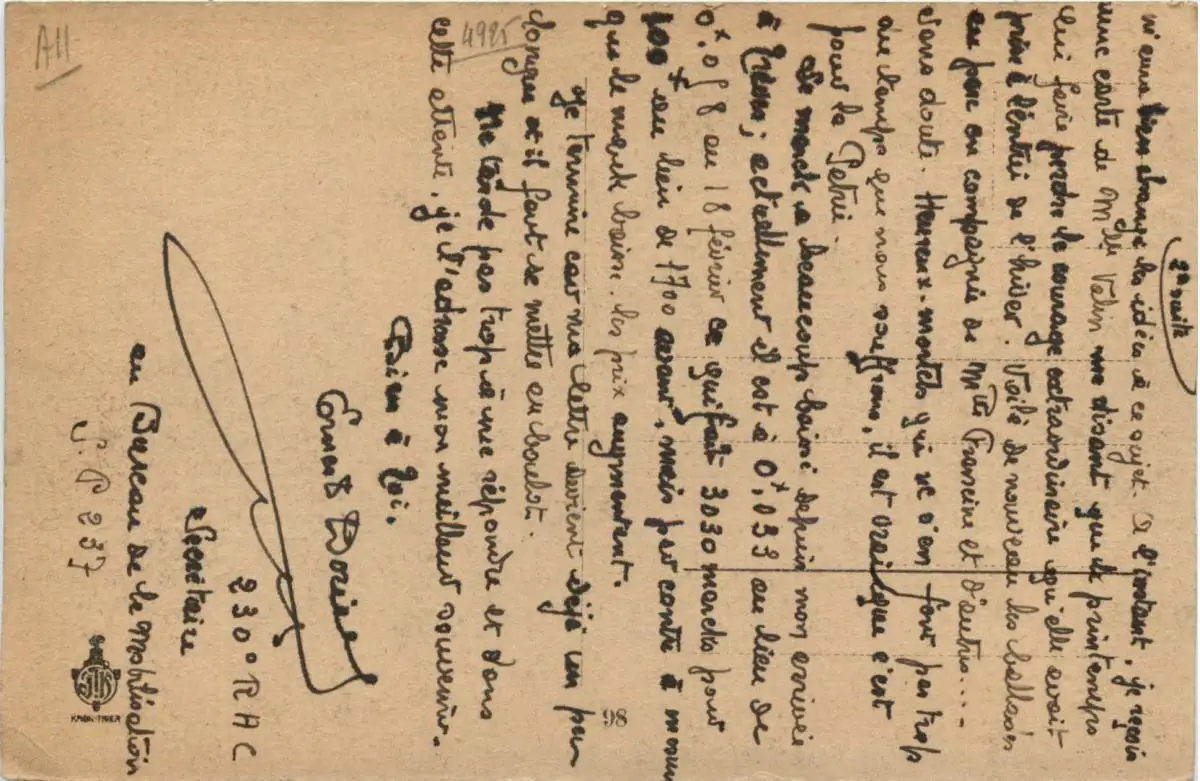 2e suite
m'aura bien changé les idées à ce sujet. A l'instant, je reçois
une carte de Melle Valin me disant que le printemps
lui faire perdre le courage extraordinaire qu'elle avait
pris à l'entrée de l'hiver. Voilà de nouveau les ballades
au parc en compagnie de Melle Francine et d'autres....
sans doute. Heureux mortels qui ne s'en font pas trop
du temps que nous souffrons, il est vrai que c'est
pour la Patrie.
Le marck a beaucoup baissé depuis mon arrivée
à ; actuellement il est à 0f,033 au lieu de
0f,058 au 18 février ce qui fait 3030 marcks pour
100f au lieu de 1700 avant, mais par contre à mesure
que le marck baisse les prix augmentent.
Je termine car ma lettre devient déjà un peu
longue et il faut se mettre au boulot.
Ne tarde pas trop à me répondre et dans
cette attente, je t'adresse mon meilleur souvenir.
Bien à toi.
Ernest
230e R A C
Secrétaire
au Bureau de la Mobilisation
S. P 237
A11
4925
98
KAISIN-TRIER